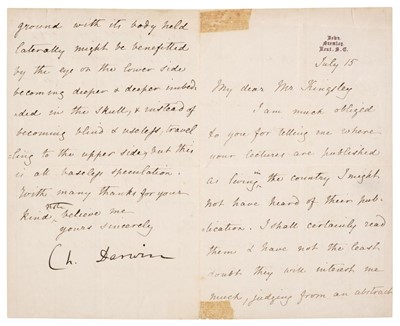 Down,
Bromley
Kent. S.E.
July 15
My dear Mr Kingsley
I am much obliged
to you for telling me where
your lectures are published
as living in the country I might
not have heard of their pub-
lication. I shall certainly read
them & have not the least
doubt they will interest me
much, judging from an abstract
ground with its body held
laterally might be benefitted
by the eye on the lower side
becoming deeper & deeper imbed-
ded in the skull, & instead of
becoming blind & useless, travel-
ling to the upper side, but this
is all baseless speculation.
With many thanks for your
kind note, believe me
yours sincerely
Ch. Darwin